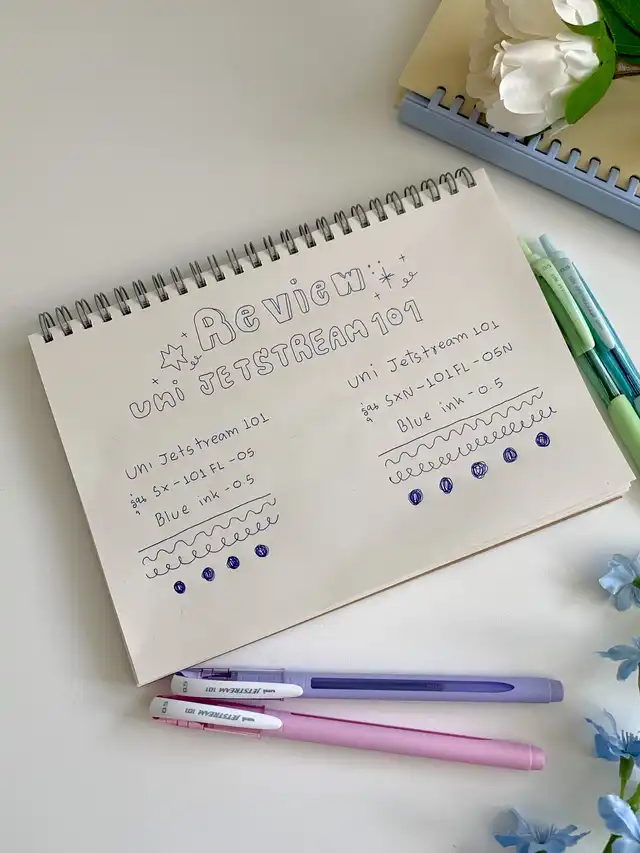 Review
uni JETSTREAM 101
uni Jetstream 101
รุ่น SX-101FL-05
Blue ink - 0.5
uni Jetstream 101
รุ่น SXN-101FL-05N
Blue ink - 0.5
uni JETSTREAM 101 0.5
uni JETSTREAM 101 0.5